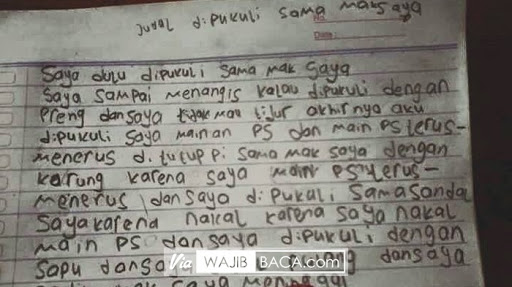 Jural dipukuli sama mak saya
No.
Date:
Saya dulu dipukuli sama mak saya
Saya sampai menangis kalau dipukuli dengan
Preng dan saya tidak mau tidur akhirnya aku
dipukuli saya mainan PS dan main PS terus-
menerus ditutuppi sama mak saya dengan
karung karena saya main PS terus-
menerus dan saya dipukuli sama sandal
Saya karena nakal karena saya nakal
main PS dan saya dipukuli dengan
Sapu dan dan saya
Via WAJIB BACA.com
mak saya